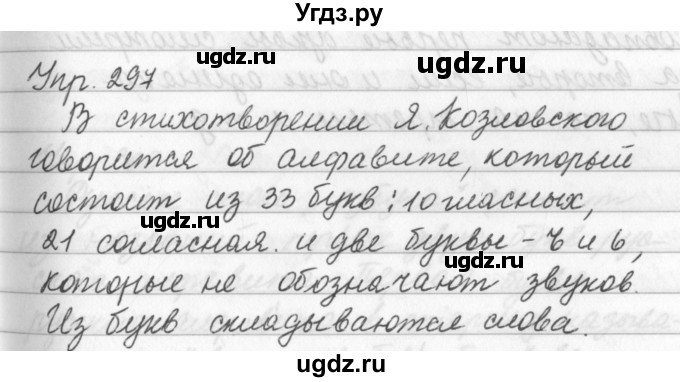 Угдз.ру
ugdz.ru
ugdz.ru
Упр. 297
В стихотворении Я. Козловского
говорится об алфавите, который
ugdz.ru
состоит из 33 букв: 10 гласных,
ugdz.ru
21 согласная. и две буквы - ъ и ь,
ugdz.ru
которые не обозначают звуков.
ugdz.ru
Из букв складываются слова.
ugdz.ru